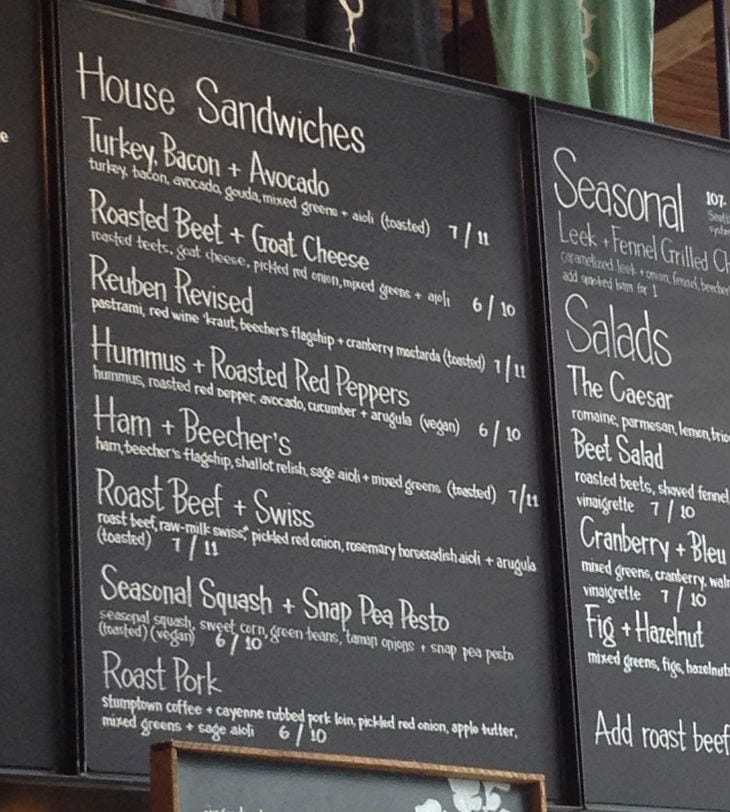 House Sandwiches
Turkey, Bacon + Avocado
turkey, bacon, avocado, gouda, mixed greens + aioli (toasted) 7/11
Roasted Beet + Goat Cheese
roasted beets, goat cheese, pickled red onion, mixed greens + aioli 6/10
Reuben Revised
pastrami, red wine 'kraut, beecher's flagship + cranberry mostarda (toasted) 7/11
Hummus + Roasted Red Peppers
hummus, roasted red pepper, avocado, cucumber + arugula (vegan) 6/10
Ham + Beecher's
ham, beecher's flagship, shallot relish, sage aioli + mixed greens (toasted) 7/11
Roast Beef + Swiss
roast beef, raw-milk swiss*, pickled red onion, rosemary horseradish aioli + arugula
(toasted) 7/11
Seasonal Squash + Snap Pea Pesto
seasonal squash, sweet corn, green beans, tamari onions + snap pea pesto
(toasted) (vegan) 6/10
Roast Pork
stumptown coffee + cayenne rubbed pork loin, pickled red onion, apple butter,
mixed greens + sage aioli 6/10
Seasonal 107.
Leek + Fennel Grilled Ch
caramelized leek + onion, fennel, beecher
add smoked ham for 1
Salads
The Caesar
romaine, parmesan, lemon, brio
Beet Salad
roasted beets, shaved fennel
vinaigrette 7/10
Cranberry + Bleu
mixed greens, cranberry, waln
vinaigrette 7/10
Fig + Hazelnut
mixed greens, figs, hazelnuts
Add roast beef